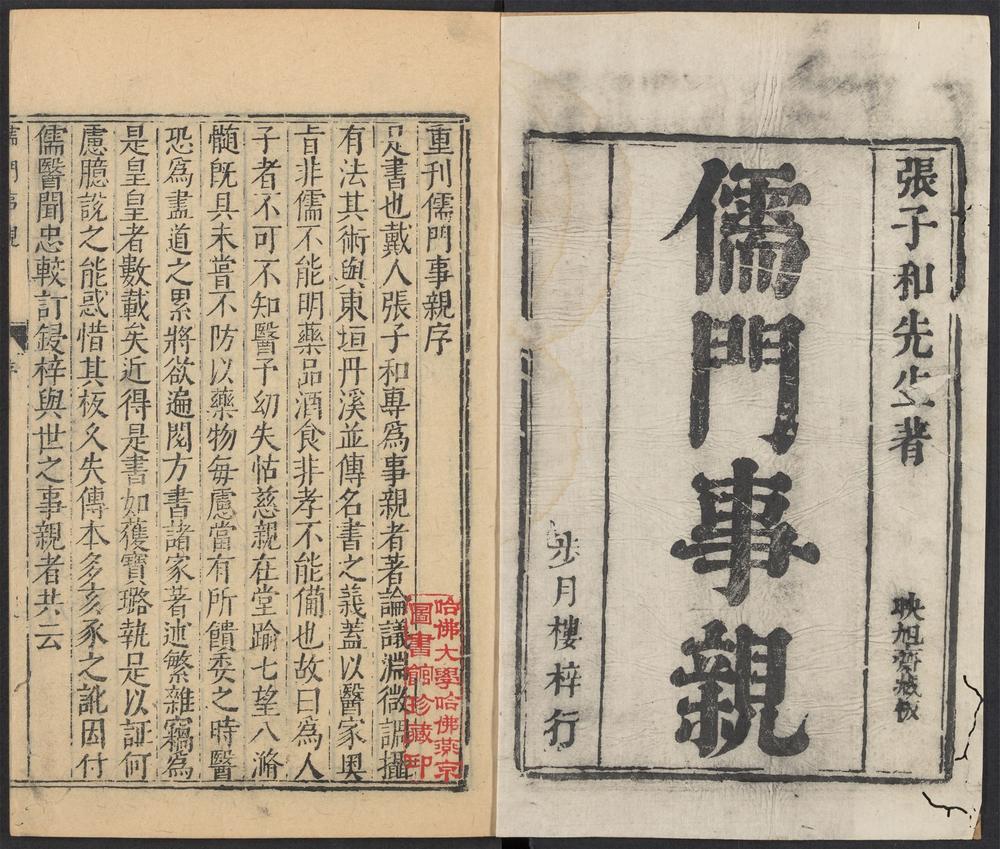 張子和先生著
映旭齋藏板
儒門事親
步月樓梓行
重刊儒門事親序
是書也戴人張子和專爲事親者著論議淵微調攝
有法其術與東垣丹溪並傳名書之義蓋以醫家奥
旨非儒不能明藥品酒食非孝不能備也故曰爲人
子者不可不知醫予幼失怙慈親在堂踰七望八滫
髓旣具未嘗不防以藥物每慮當有所饋委之時醫
恐爲盡道之累將欲遍閱方書諸家著述繁雜竊爲
是皇皇者數載矣近得是書如獲寶璐執是以証何
慮臆說之能惑惜其板久失傳本多亥豕之訛因付
儒醫聞忠較訂鋟梓與世之事親者共云
儒門事親
序
哈佛大學哈佛燕京
圖書館珍藏印